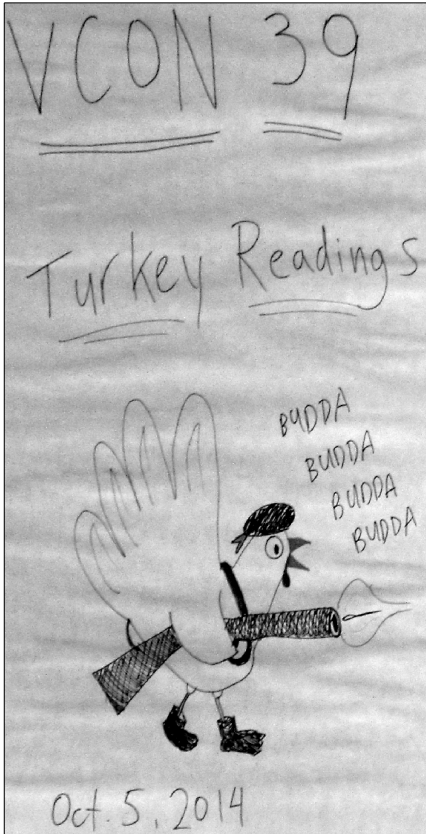 VCON 39
Turkey Readings
BUDDA
BUDDA
BUDDA
BUDDA
Oct. 5, 2014